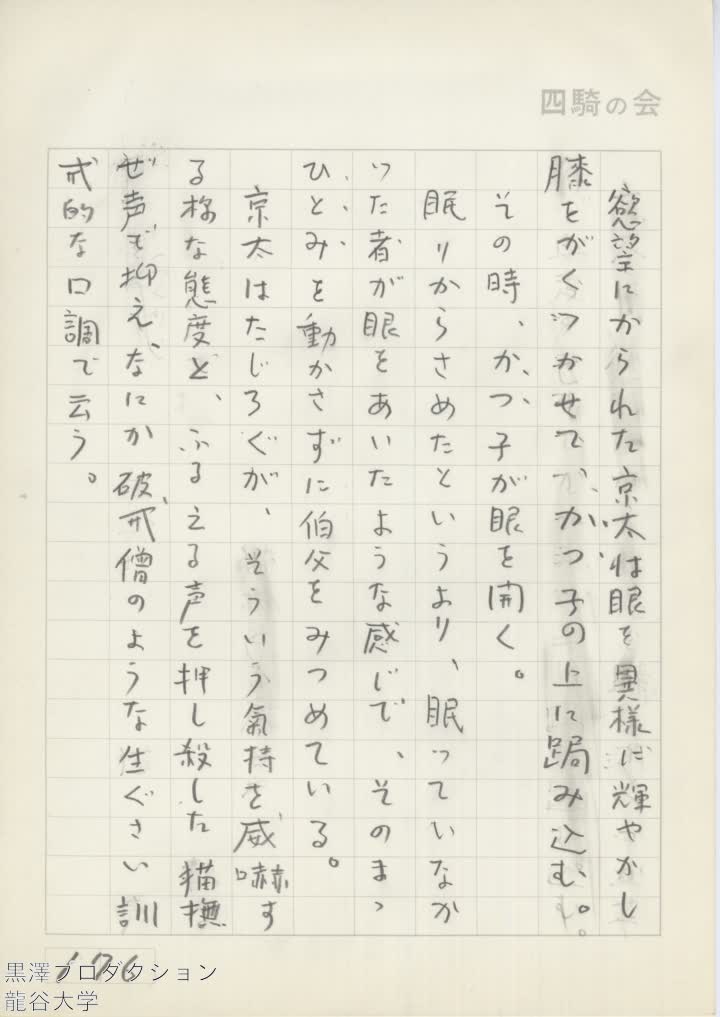 四騎の会
慾望にかられた京太は眼を異様に輝やかし
膝をがくつかせてかつ子の上に跼み込む。
その時、かつ子が眼を開く。
眠りからさめたというより、眠っていなか
った者が眼をあいたような感じで、そのまゝ
ひとみを動かさずに伯父をみつめている。
京太はたじろぐが、そういう氣持を威嚇す
る様な態度と、ふるえる声を押し殺した猫撫
ぜ声で抑え、なにか破戒僧のような生ぐさい訓
戒的な口調で云う。
176
黒澤プロダクション
龍谷大学